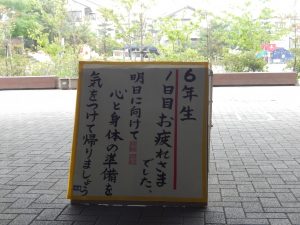 6年生
1日目お疲れさま
でした。
明日に向けて
心と身体の準備を
気をつけて帰りましょう